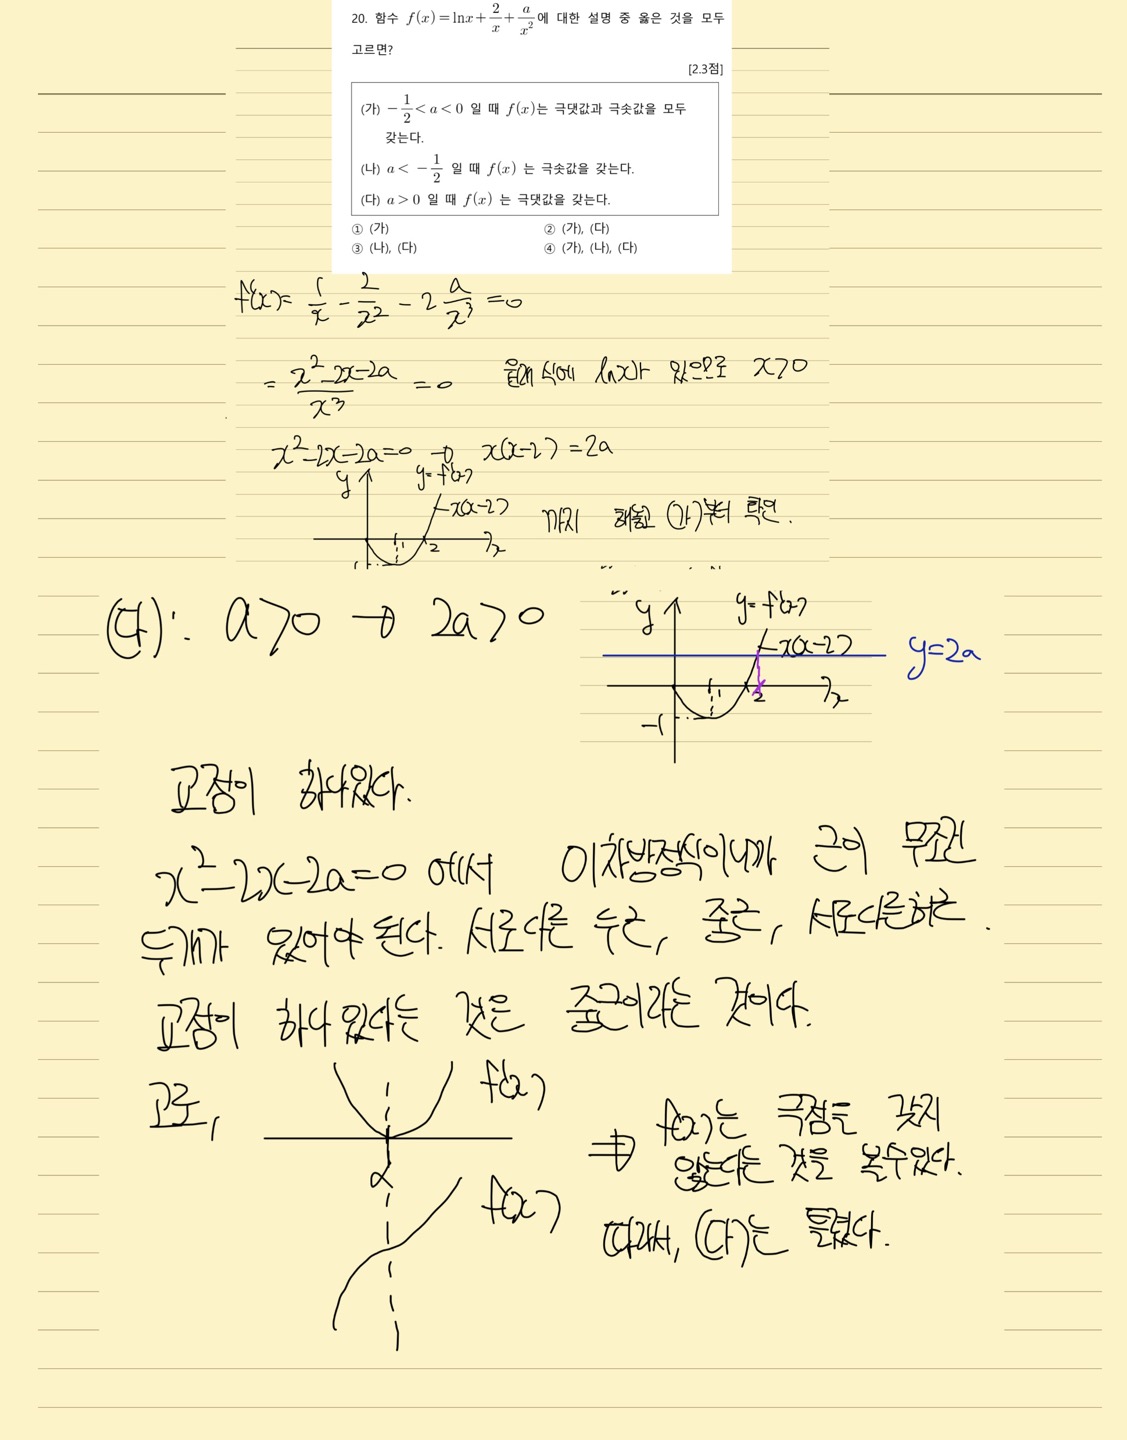 20. 함수 f(x)=lnx+2/x+a/x²에 대한 설명 중 옳은 것을 모두
고르면?
[2.3점]
(가) -1/2<a<0 일 때 f(x)는 극댓값과 극솟값을 모두
갖는다.
(나) a< -1/2 일 때 f(x) 는 극솟값을 갖는다.
(다) a>0 일 때 f(x) 는 극댓값을 갖는다.
① (가) ② (가), (다)
③ (나), (다) ④ (가), (나), (다)
f'(x)= 1/x - 2/x² - 2 a/x³ =0
= (x²-2x-2a)/x³ =0 식에 lnx가 있으므로 x>0
x²-2x-2a=0 → x(x-2)=2a
y y=f'(x)
x(x-2) 까지 해놓고 (가)부터 확인.
1 2 x
(다): a>0 → 2a>0
y y=f'(x)
x(x-2) y=2a
1 2 x
-1
교점이 하나있다.
x²-2x-2a=0 에서 이차방정식이니까 근이 무조건
두개가 있어야 된다. 서로다른 두근, 중근, 서로다른허근.
교점이 하나 있다는 것은 중근이라는 것이다.
고로, f'(x)
α
f(x)
⇒ f(x)는 극점을 갖지
않는다는 것을 볼수있다.
따라서, (다)는 틀렸다.